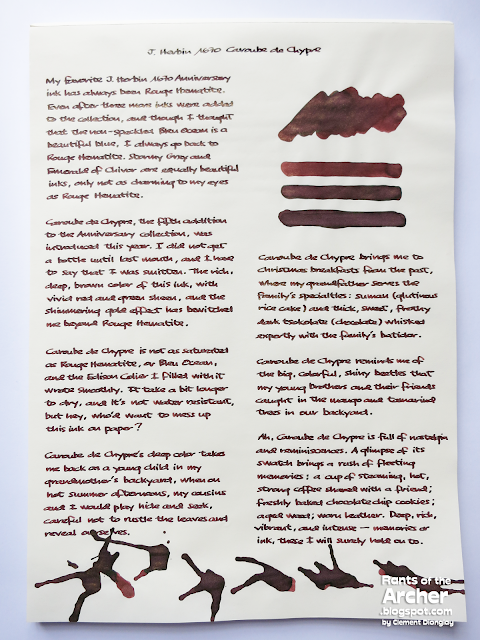 J. Herbin 1670 Caroube de Chypre
My favorite J. Herbin 1670 Anniversary
ink has always been Rouge Hematite.
Even after three more inks were added
to the collection, and though I thought
that the non-speckled Bleu Ocean is a
beautiful blue, I always go back to
Rouge Hematite. Stormy Grey and
Emerald of Chivor are equally beautiful
inks, only not as charming to my eyes
as Rouge Hematite.
Caroube de Chypre, the fifth addition
to the Anniversary collection, was
introduced this year. I did not get
a bottle until last month, and I have
to say that I was smitten. The rich,
deep, brown color of this ink, with
vivid red and green sheen, and the
shimmering gold effect has bewitched
me beyond Rouge Hematite.
Caroube de Chypre is not as saturated
as Rouge Hematite, or Bleu Ocean,
and the Edison Colier I filled with it
wrote smoothly. It take a bit longer
to dry, and it's not water resistant,
but hey, who'd want to mess up
this ink on paper?
Caroube de Chypre's deep color takes
me back as a young child in my
grandmother's backyard, when on
hot summer afternoons, my cousins
and I would play hide and seek,
careful not to rustle the leaves and
reveal ourselves.
Caroube de Chypre brings me to
Christmas breakfasts from the past,
where my grandfather serves the
family's specialties: suman (glutinous
rice cake) and thick, sweet, frothy
dark tsokolate (chocolate) whisked
expertly with the family's batidor.
Caroube de Chypre reminds me of
the big, colorful, shiny beetles that
my young brothers and their friends
caught in the mango and tamarind
trees in our backyard.
Ah, Caroube de Chypre is full of nostalgia
and reminiscences. A glimpse of its
swatch brings a rush of fleeting
memories: a cup of steaming, hot,
strong coffee shared with a friend;
freshly baked chocolate chip cookies;
aged wood; worn leather. Deep, rich,
vibrant, and intense - memories or
ink, these I will surely hold on to.
Rants of the
Archer
.blogspot.com
by Clement Dionglay